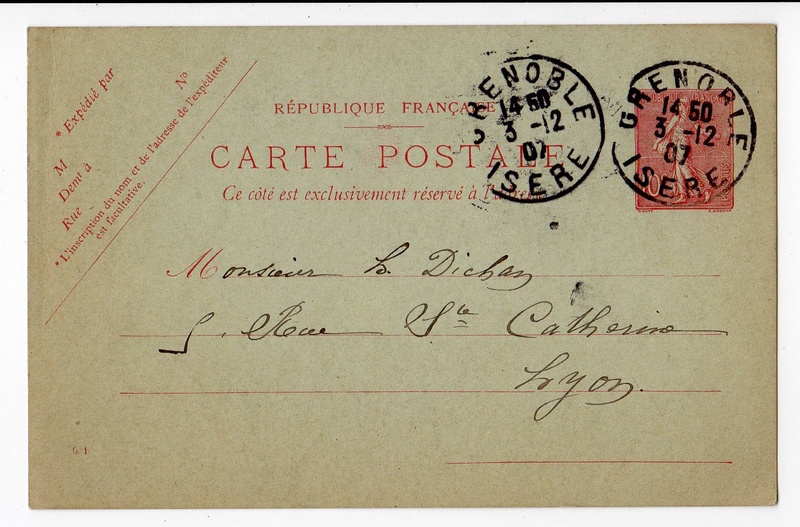 * Expédié par
M
Demt à
Rue
No
* L'inscription du nom et de l'adresse de l'expéditeur
est facultative.
RÉPUBLIQUE FRANÇAISE
CARTE POSTALE
Ce côté est exclusivement réservé à l'adresse
GRENOBLE
14 50
3 -12
07
ISERE
GRENOBLE
14 50
3 -12
07
ISERE
10
Monsieur
5. Rue Ste Catherine
Lyon.